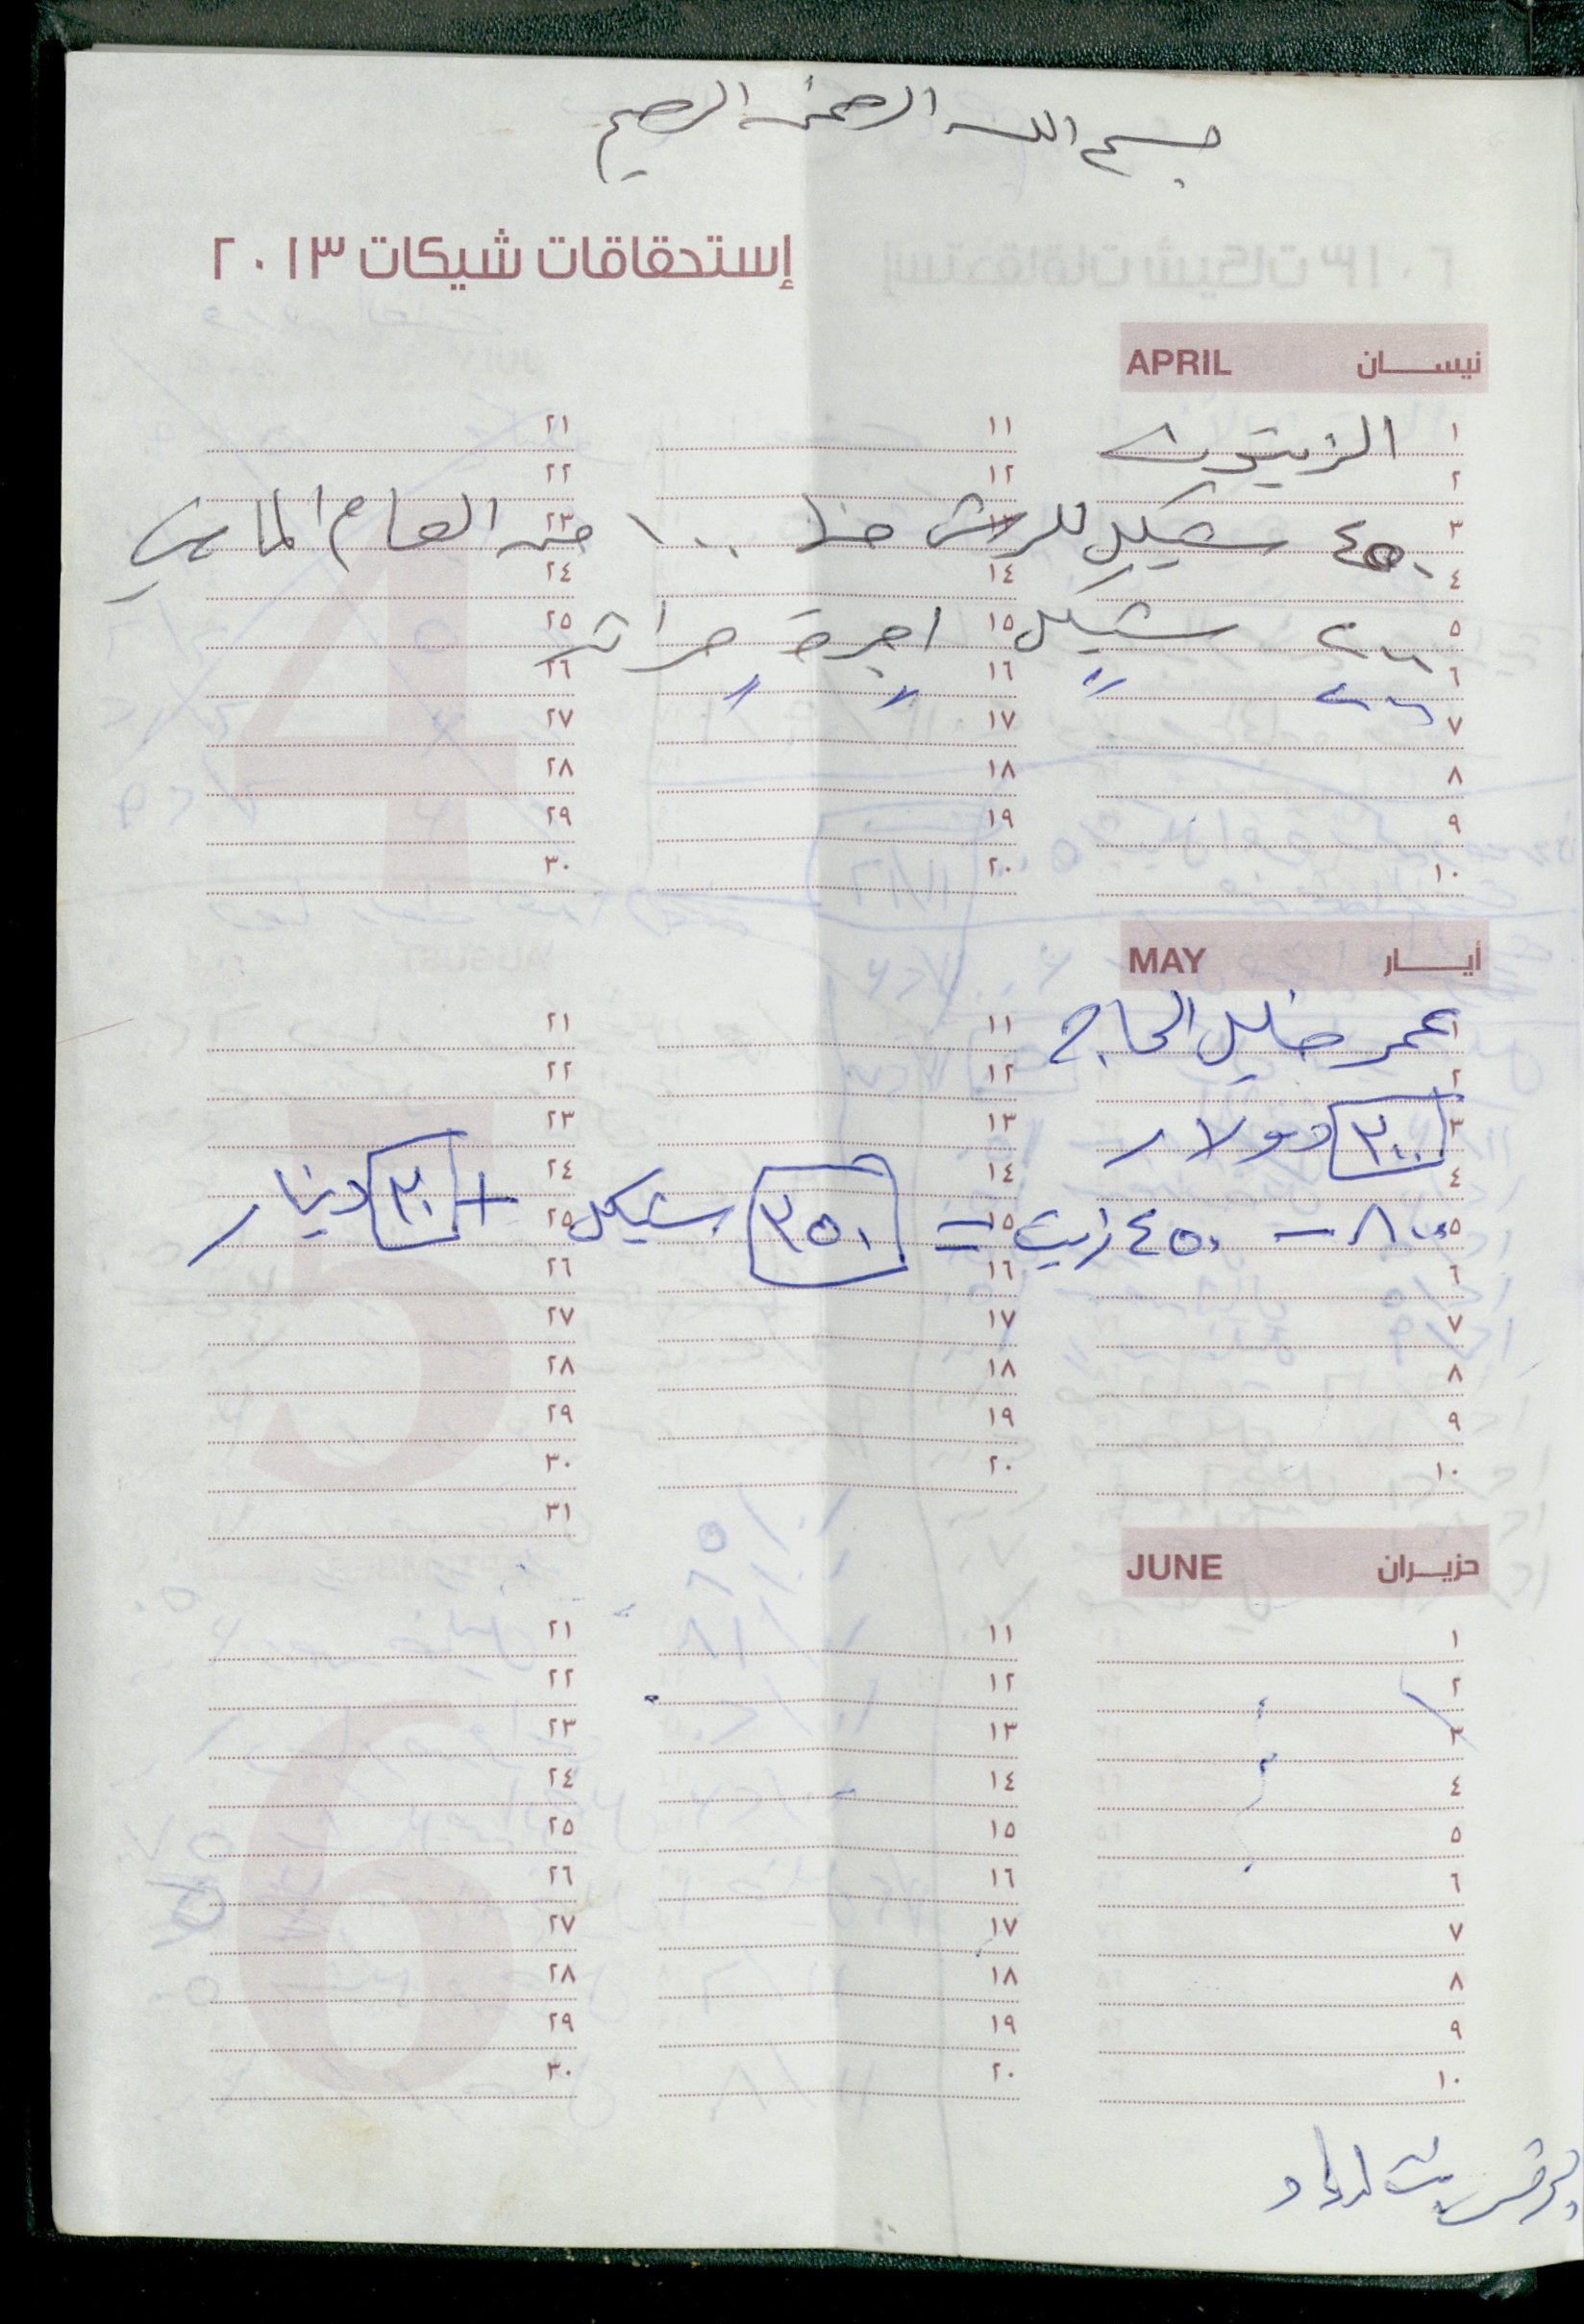 بسم الله الرحمن الرحيم
إستحقاقات شيكات ٢٠١٣
نيســـان APRIL
١ ١١ ٢١
الزيتون
٢ ١٢ ٢٢
٣ ١٣ ٢٣
٤٥٠ شيكل للرش منها ١٠٠ من العام الماضي
٤ ١٤ ٢٤
٥ ١٥ ٢٥
٢٠٠ شيكل اجرة حراث
٦ ١٦ ٢٦
٢٠٠ " " "
٧ ١٧ ٢٧
٨ ١٨ ٢٨
٩ ١٩ ٢٩
١٠ ٢٠ ٣٠
أيـــار MAY
١ ١١ ٢١
عمر خليل الحاج
٢ ١٢ ٢٢
٣ ١٣ ٢٣
٣٠٠ دولار
٤ ١٤ ٢٤
٥ ١٥ ٢٥
٨٠٠ - ٤٥٠ زيت = ٣٥٠ شيكل + ٣٠ دينار
٦ ١٦ ٢٦
٧ ١٧ ٢٧
٨ ١٨ ٢٨
٩ ١٩ ٢٩
١٠ ٢٠ ٣٠
٣١
حزيــران JUNE
١ ١١ ٢١
٢ ١٢ ٢٢
٣ ١٣ ٢٣
٤ ١٤ ٢٤
٥ ١٥ ٢٥
٦ ١٦ ٢٦
٧ ١٧ ٢٧
٨ ١٨ ٢٨
٩ ١٩ ٢٩
١٠ ٢٠ ٣٠